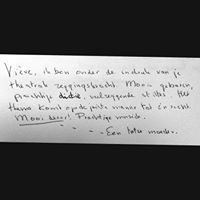 Viève, ik ben onder de indruk van je
theatrale zeggingskracht. Mooie gebaren,
prachtige dictie, veelzeggende stiltes. Het
thema komt op de juiste manier tot z'n recht.
Mooi decor! Prachtige muziek.
- Een